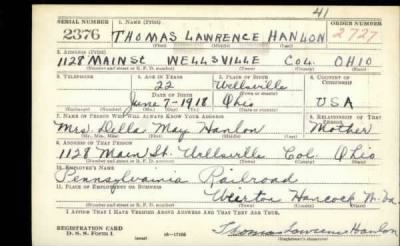 41
SERIAL NUMBER 1. NAME (Print) ORDER NUMBER
2376 THOMAS LAWRENCE HANLON 2727
(First) (Middle) (Last)
2. ADDRESS (Print)
1128 MAIN ST WELLSVILLE COL. OHIO
3. TELEPHONE 4. AGE IN YEARS 5. PLACE OF BIRTH 6. COUNTRY OF CITIZENSHIP
22 Wellsville
DATE OF BIRTH (Town or county)
June 7-1918 Ohio USA
(Exchange) (Number) (Mo.) (Day) (Yr.) (State or country)
7. NAME OF PERSON WHO WILL ALWAYS KNOW YOUR ADDRESS 8. RELATIONSHIP OF THAT PERSON
Mrs. Della May Hanlon Mother
(Mr., Mrs., Miss) (First) (Middle) (Last)
9. ADDRESS OF THAT PERSON
1128 Main St. Wellsville Col. Ohio
10. EMPLOYER'S NAME
Pennsylvainia Railroad
11. PLACE OF EMPLOYMENT OR BUSINESS
Weirton Hancock W. Va
I AFFIRM THAT I HAVE VERIFIED ABOVE ANSWERS AND THAT THEY ARE TRUE.
REGISTRATION CARD
D. S. S. Form 1 (over) 16—17105 Thomas Lawrence Hanlon
(Registrant's signature)